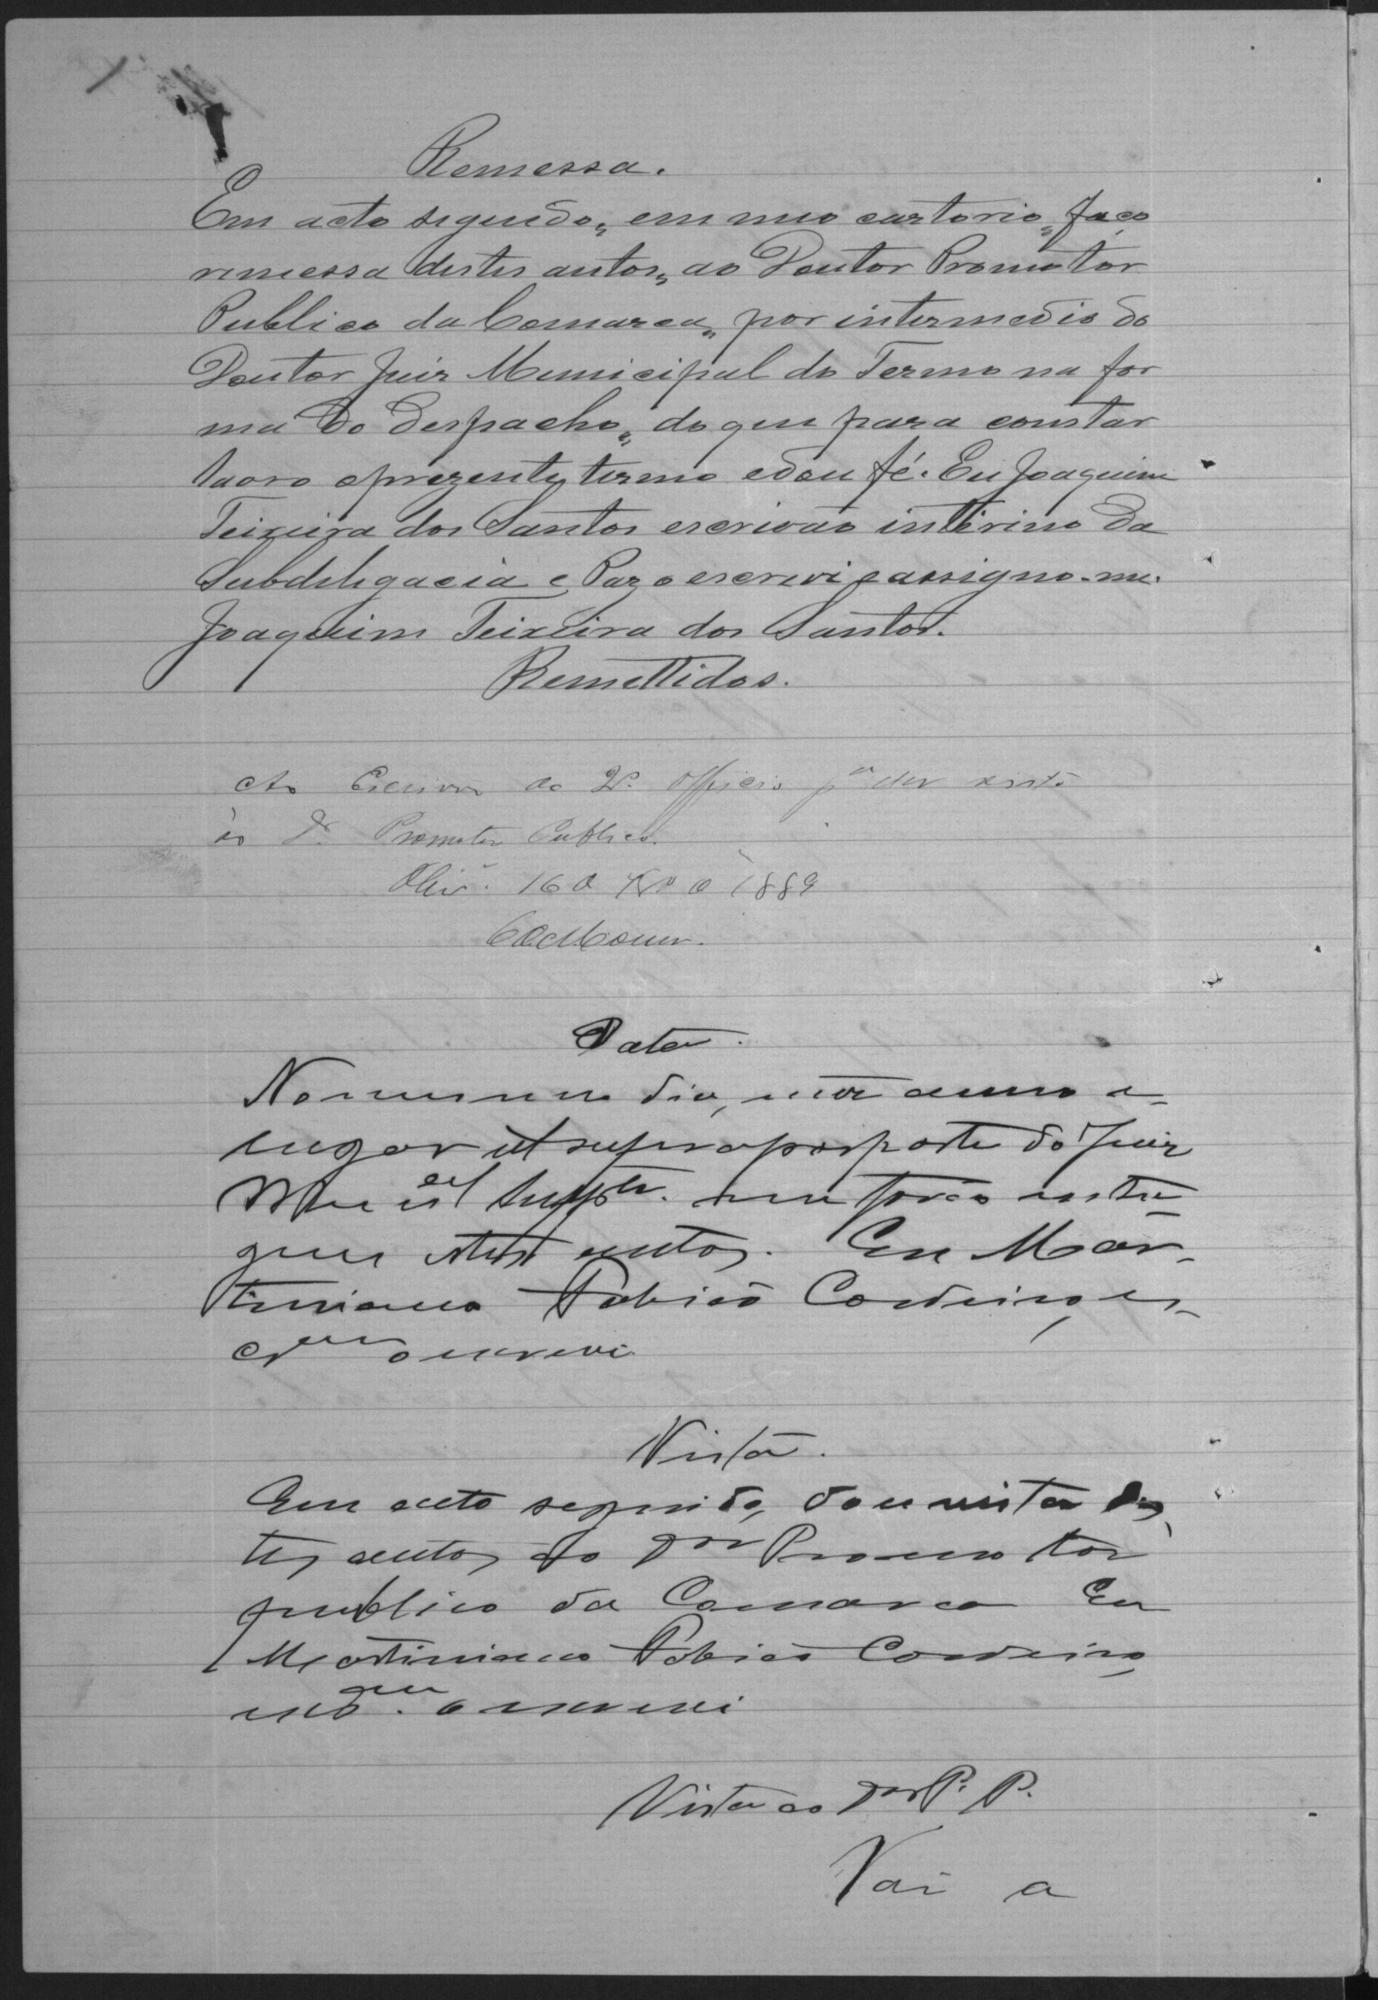 Remessa.
Em acto seguido, em meo cartorio, faço
remessa destes autos, ao Doutor Promotor
Publico da Comarca, por intermedio do
Doutor Juiz Municipal do Termo na for
ma do despacho, do que para constar
lavro o prezente termo e dou fé. Eu Joaquim
Teixeira dos Santos escrivão interino da
Subdelegacia e Paz o escrevi e assigno-me.
Joaquim Teixeira dos Santos.
Remettidos.
Ao Escrivão do 2º. Officio pª dar vista
ao Dr. Promotor Publico.
1889
Data.
No mesmo dia, mez anno e
lugar ut supra por parte do Juiz
Mu.al Supp.te me forão entre
gues estes autos. Eu Mar-
tiniano Fabião Cordeiro, es-
o escrevi
Vista.
Em acto seguido, dou vista des
tes autos ao Dor Promotor
publico da Comarca Eu
Martiniano Fabião Cordeiro
o escrevi
Vista ao Dor P. P.
Vai a